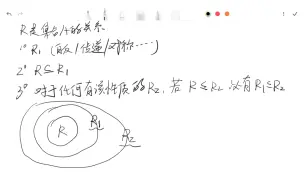 R是集合A的关系
1° R₁ (自反/传递/对称……)
2° R⊆R₁
3° 对于任何有该性质的R₂, 若 R⊆R₂ 必有R₁⊆R₂
R
R₁
R₂